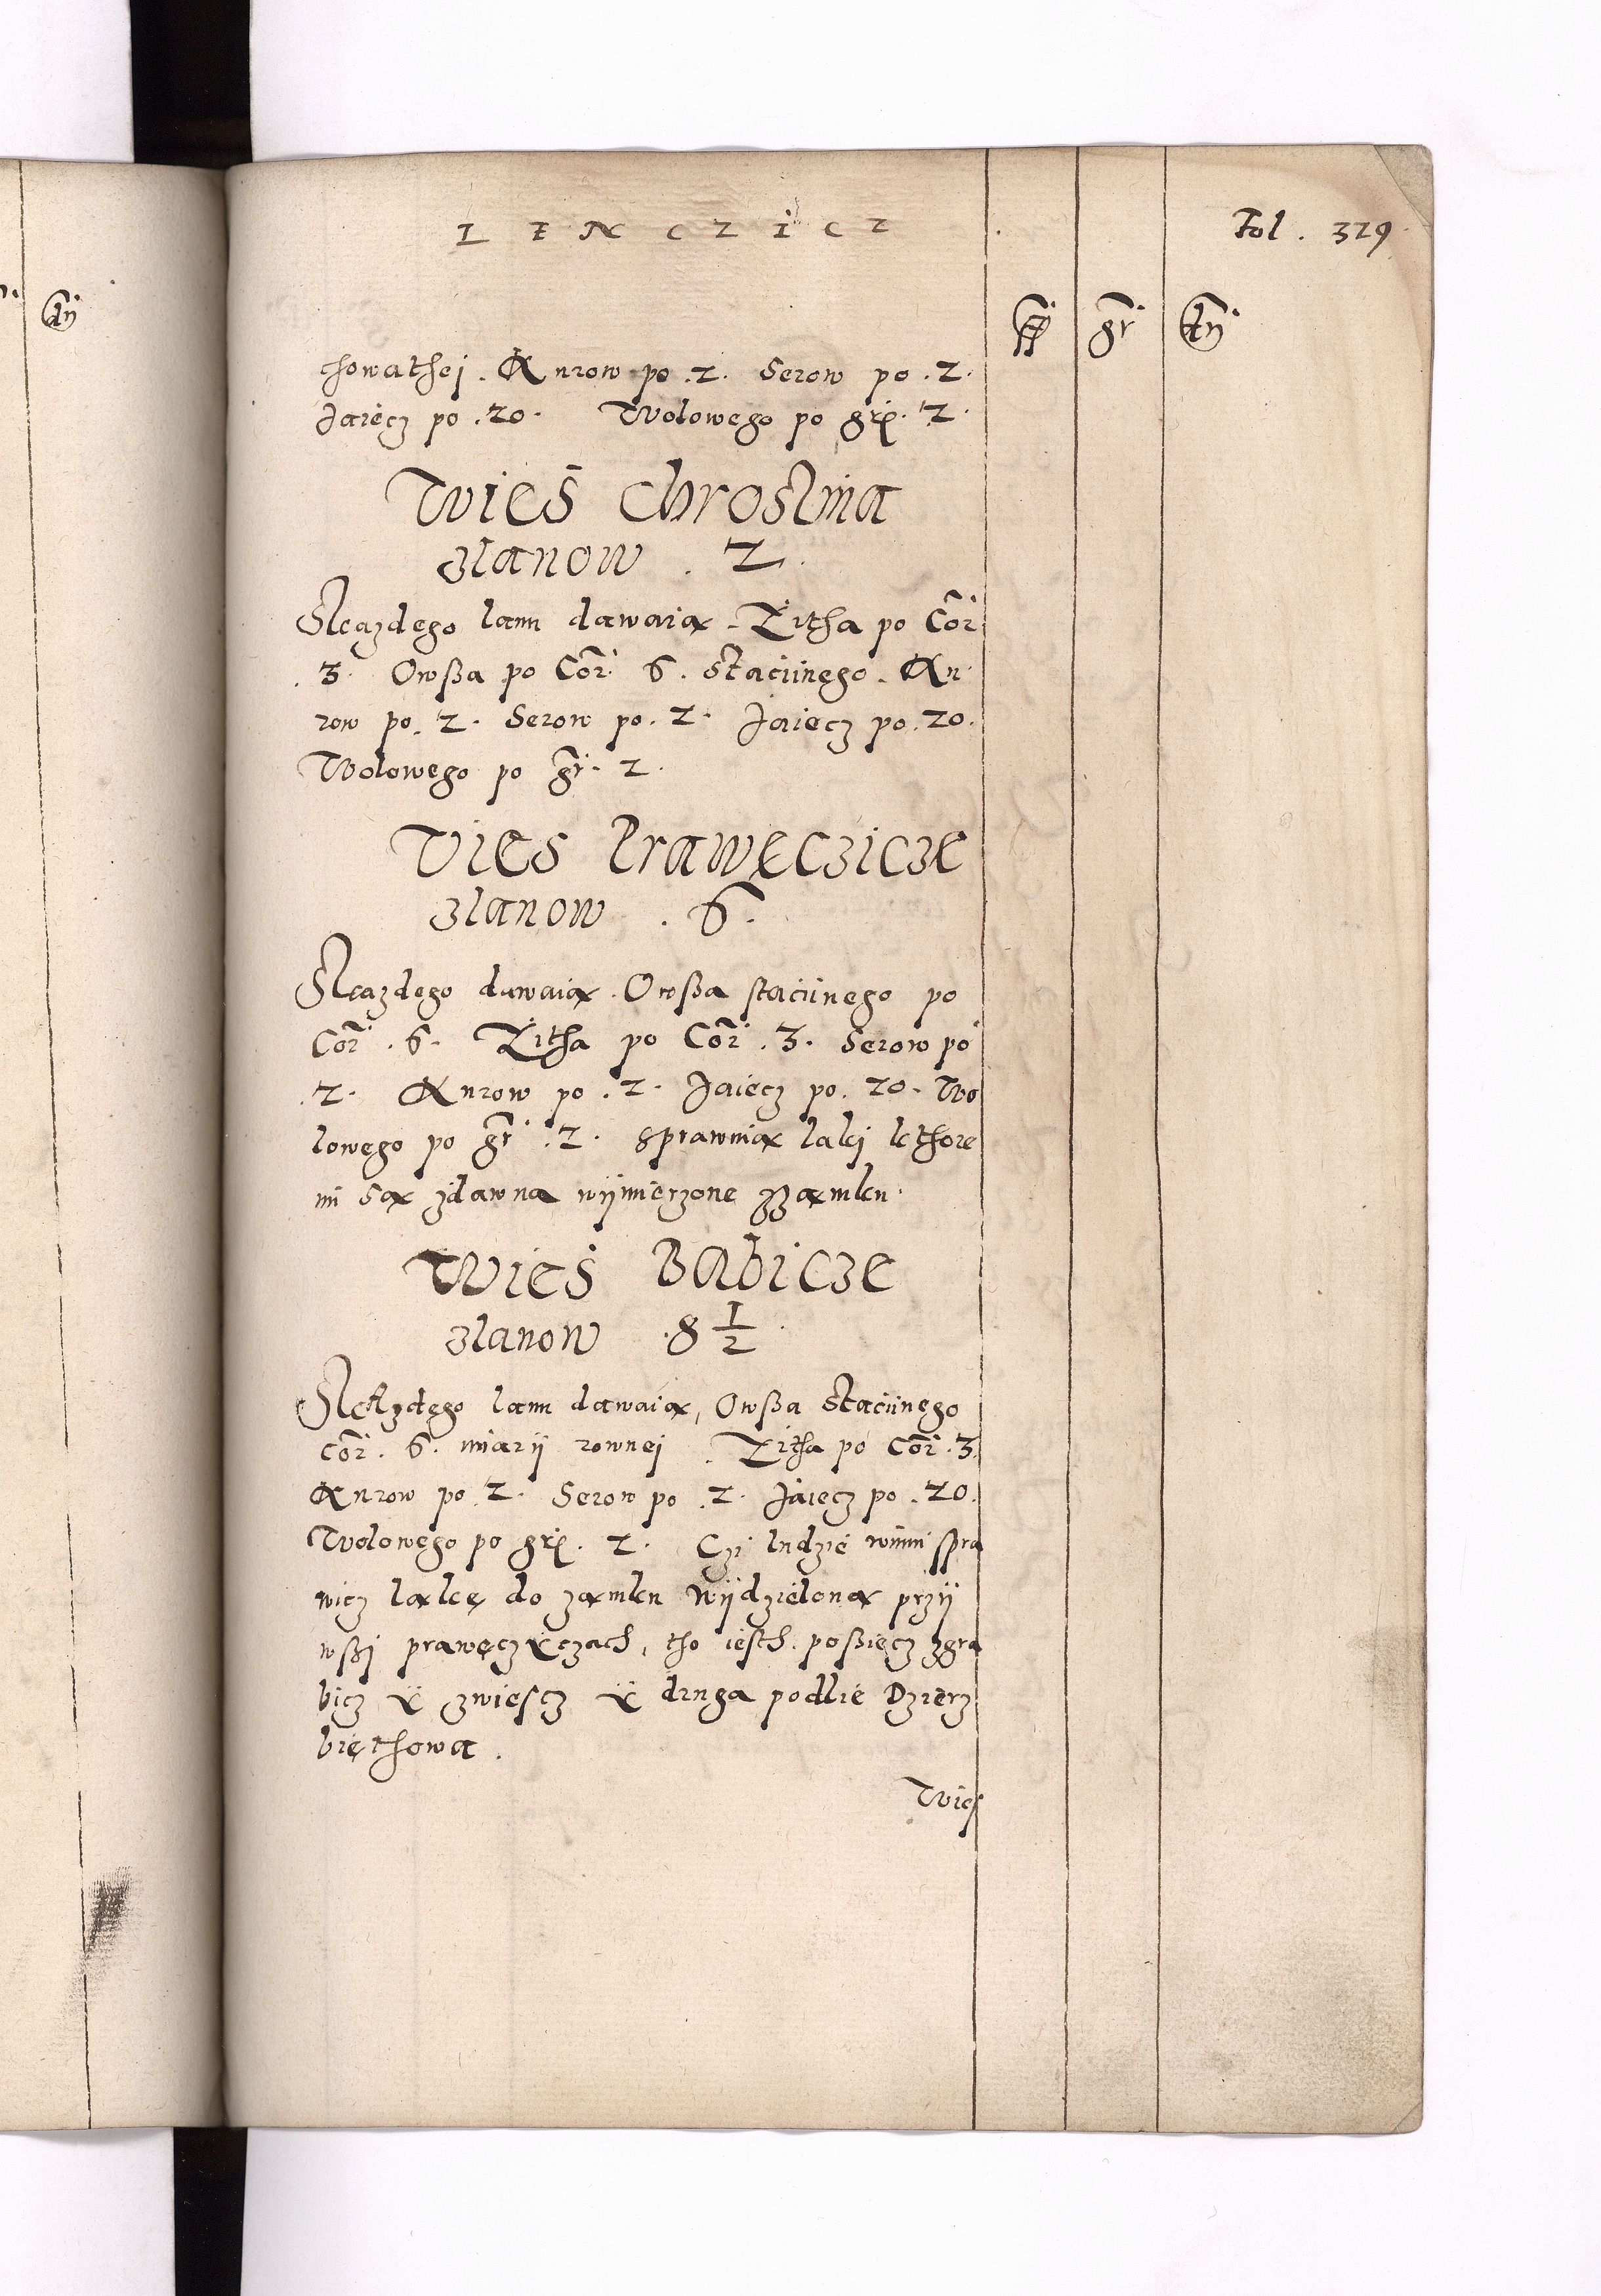 LENCZICZ
Fol. 329
fl gr dn
dn
chowathej. Kurow po .2. Serow po .2.
Jaiecz po .20. Wolowego po grų. 2.
Wies Chrostina
zlanow . 2.
Skazdego lanu dawaią. Zitha po Cor
.3. Owßa po Cor. 6. staciinego. Ku
row po. 2. Serow po. 2. Jaiecz po. 20.
Wolowego po gr. 2.
Vies Prawęczicze
zlanow . 6.
Skazdego dawaią. Owßa staciinego po
Cor. 6. Zitha po Cor. 3. Serow po
.2. Kurow po .2. Jaiecz po. 20. Wo
lowego po gr. 2. sprawuią laki kthore
mi są zdawna wÿmierzone zzamku.
Wies Babicze
zlanow .8 1/2
Skazdego lanu dawaią, Owßa staciinego
cor. 6. miarÿ rownej. Zitha po Cor. 3.
Kurow po .2. Serow po .2. Jaiecz po .20.
Wolowego po grų. 2. Czi ludzie winni spra
wicz ląkę do zamku wÿdzieloną przÿ
wßj prawęczÿczach, tho iesth. posßiecz zgra
bicz ÿ zwiescz ÿ druga podlie Dzierz
biethowa.
Wies